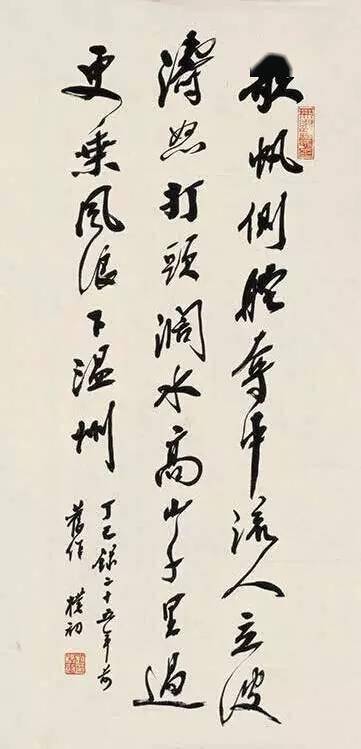 帆側舵奪中流人立波
濤怒打頭濶水高山千里過
更乘風浪下温州
丁巳録二十五年前
舊作 樸初